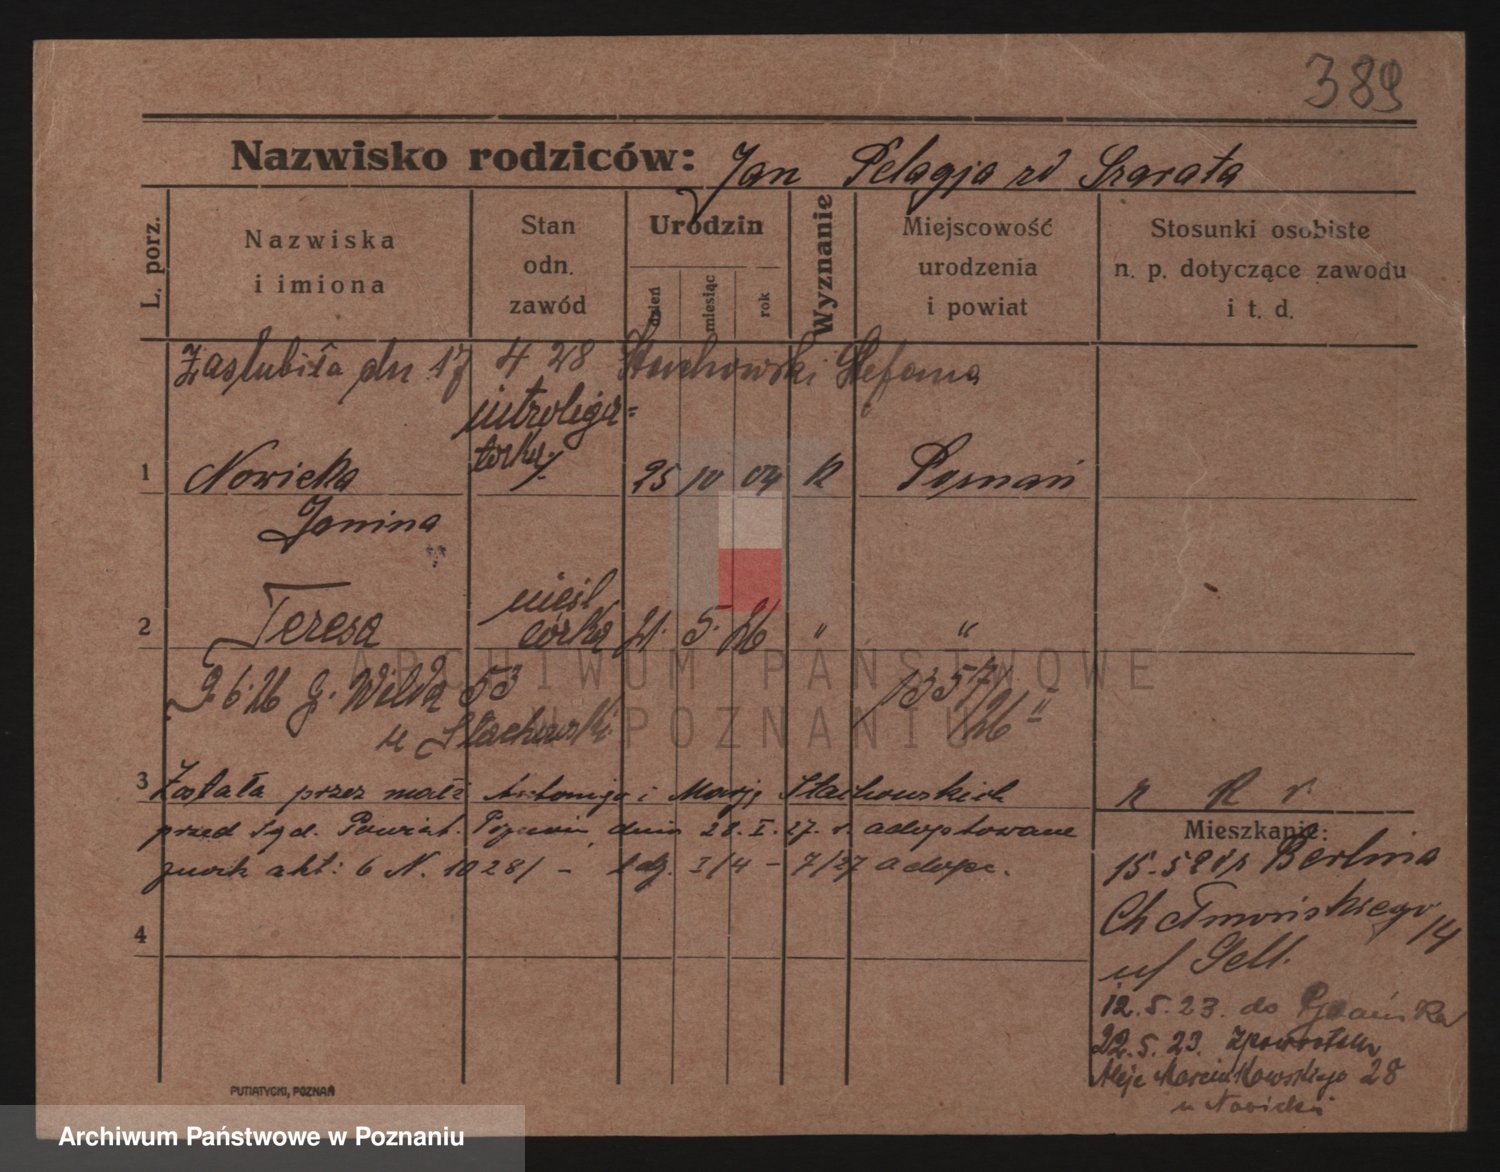 389
Nazwisko rodziców: Jan Pelagja zd Szarata
L. porz.
Nazwiska
i imiona
Stan
odn.
zawód
Urodzin
dzień
miesiąc
rok
Wyznanie
Miejscowość
urodzenia
i powiat
Stosunki osobiste
n. p. dotyczące zawodu
i t. d.
Zaślubiła dn 17 4 28 Stachowski Stefana
introliga=
torka
1 Nowicka 25 10 04 k Poznań
Janina
nieśl
2 Teresa córka 21. 5. 26 " "
2 6 26 G. Wilda 53 1357/26
u Stachowski
3 Została przez małż Antoniego i Marję Stachowskich
przed Sąd. Powiat. Poznań dnia 28. I. 27. r. adoptowane
akt: 6 N. 1028/ – I/4 – 7/27 adopc.
4
Mieszkanie:
15-5 Berlina
Chełmońskiego 14
12.5.23. do
22.5.23. zpowrotem
Aleje Marcinkowskiego 28
u Nowicki
PUTIATYCKI, POZNAŃ
ARCHIWUM PAŃSTWOWE
W POZNANIU
Archiwum Państwowe w Poznaniu